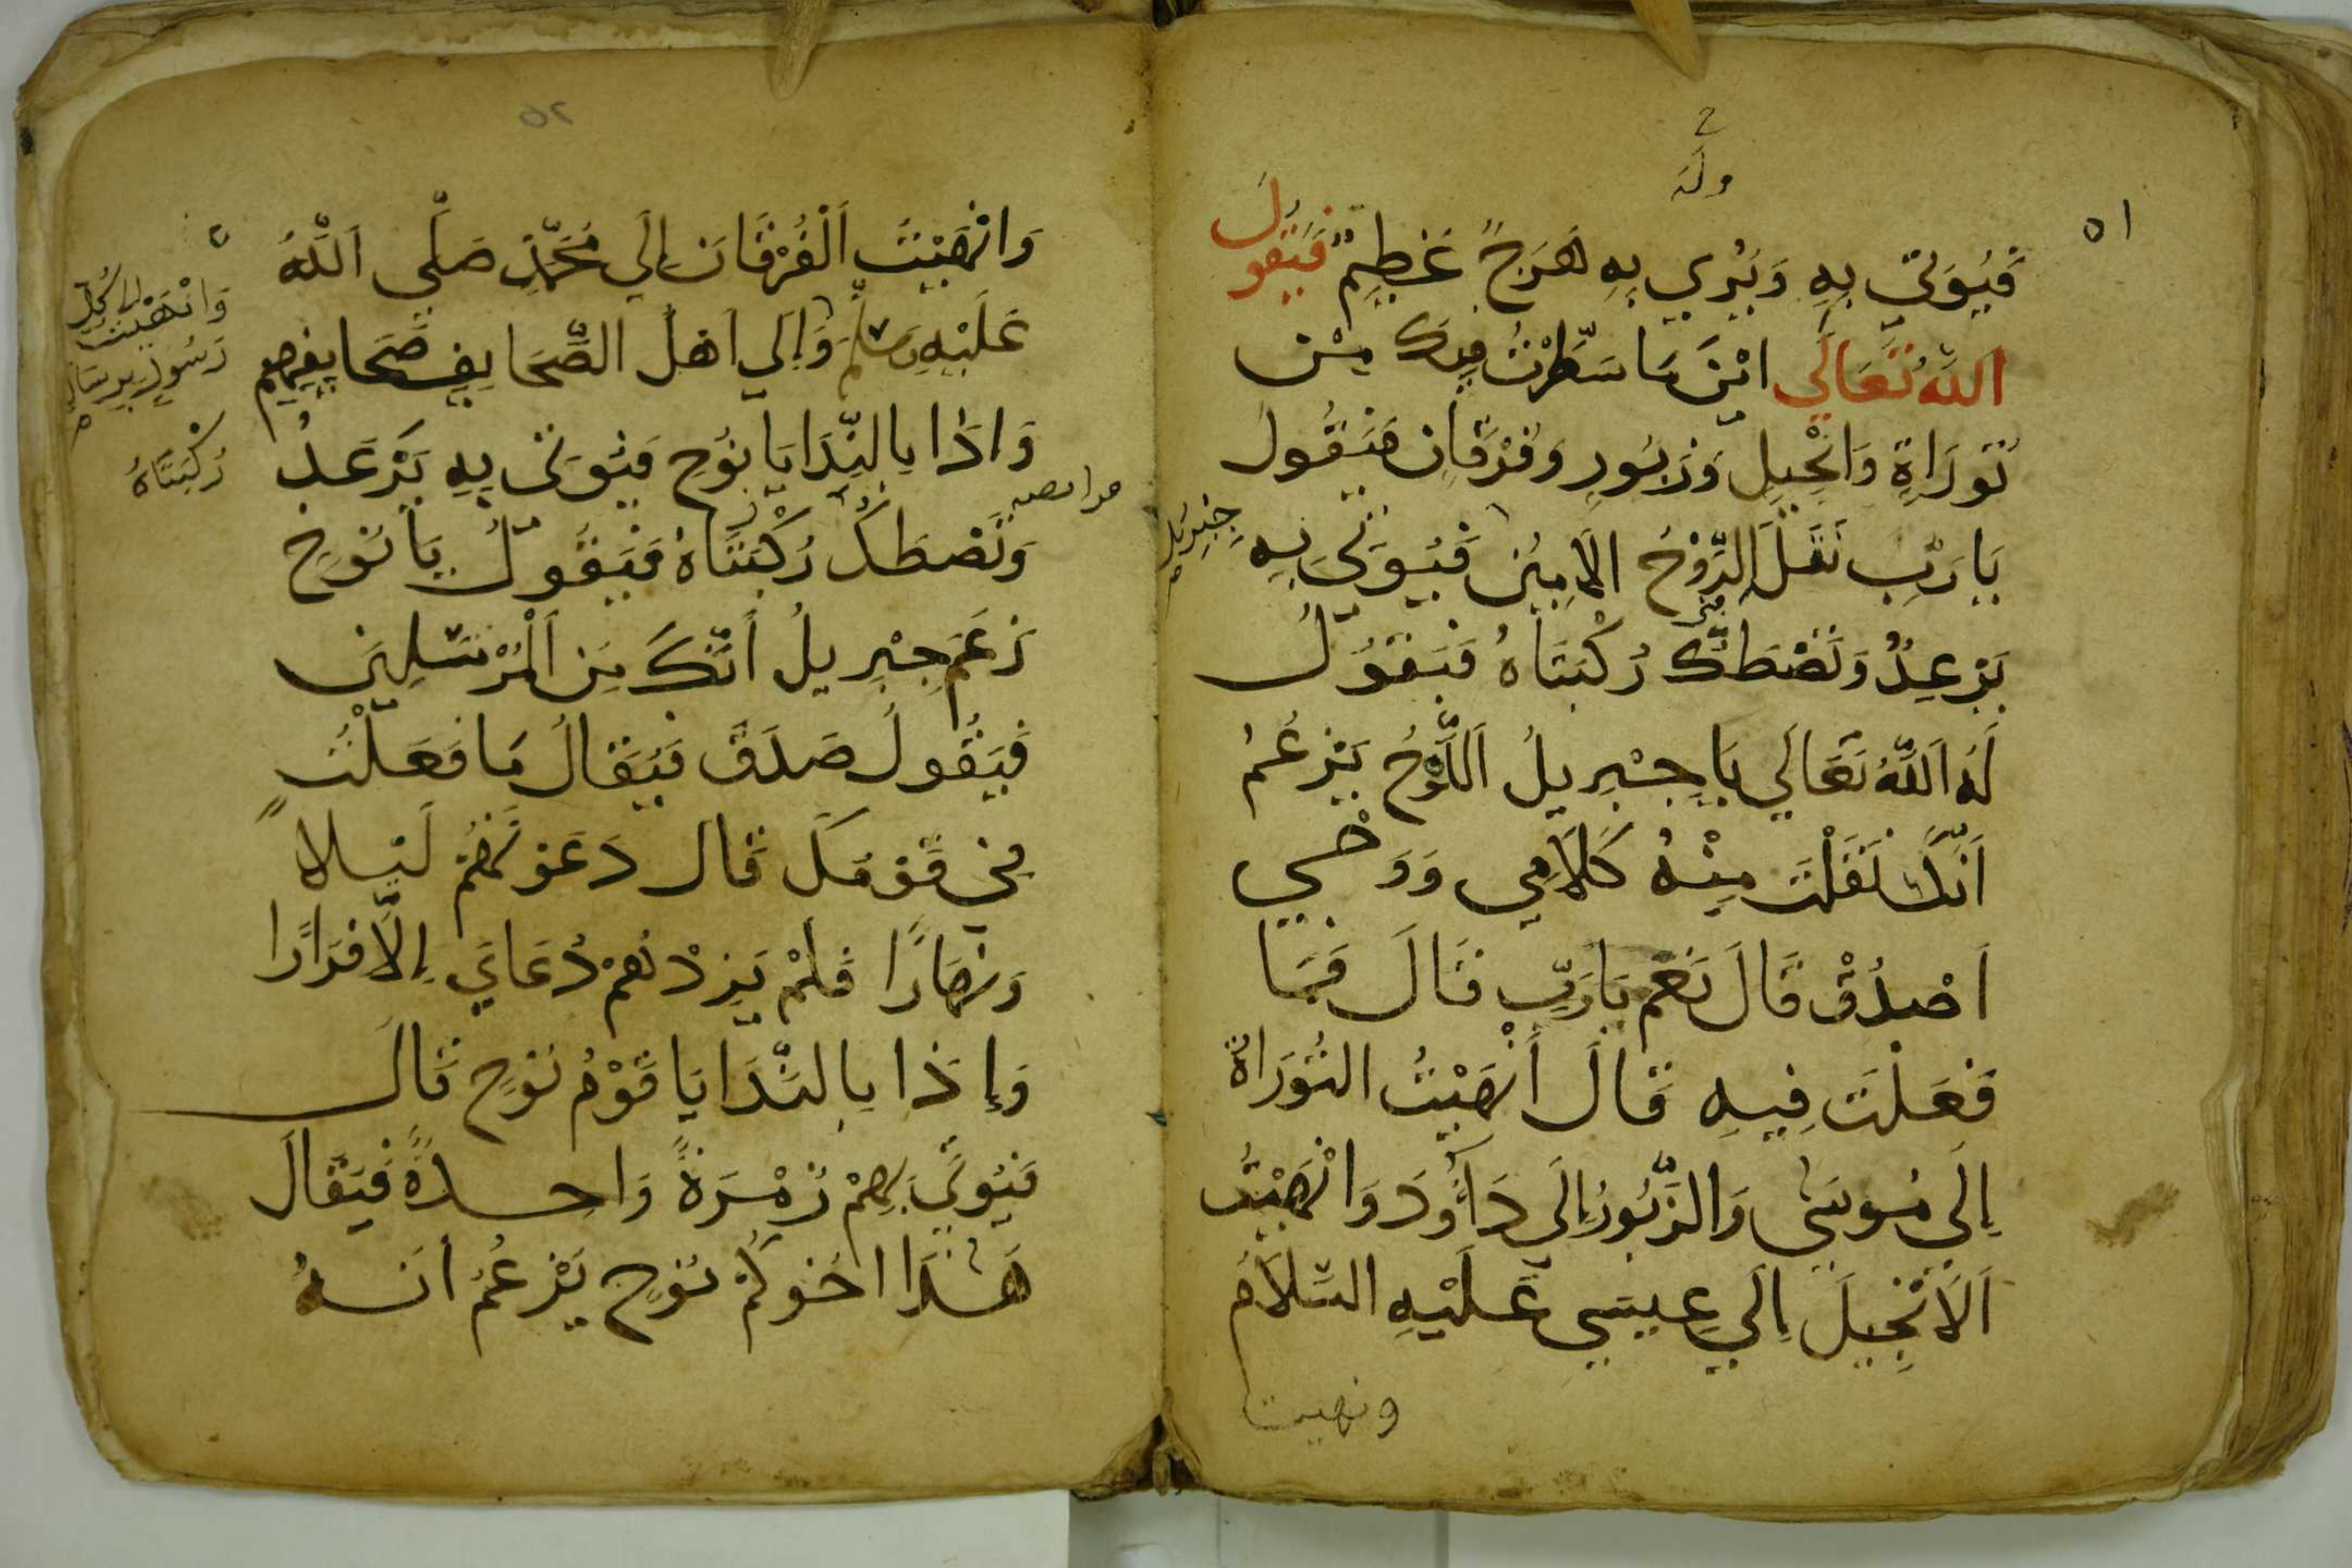 ٥١
وله
فَيُوتَي بِهِ وَيُرَي بِهِ هَرَجً عَظِيمٌ فَيَقُولُ
اللَّهُ تَعَالَي ايْنَ مَا سَطَّرْتُ فِيكَ مِنْ
تَوْرَاةٍ وَانْجِيلٍ وَزَبُورٍ وَفُرْقَانٍ فَيَقُولُ
يَا رَبِّ نَقَلَ الرُّوْحُ الاَمِينُ فَيُوتَي بِهِ
جِبْرِيل
يَرْعِدُ وَتَصْطَكُّ رُكْبَتَاهُ فَيَقُولُ
لَهُ اَللَّهُ تَعَالَي يَا جِبْرِيلُ اَللَّوْحُ يَزْعُمُ
اَنَّكَ نَقَلْتَ مِنْهُ كَلَامِي وَوَحْيِي
اَصْدُقْ قَالَ نَعَمْ يَا رَبِّ قَالَ فَمَا
فَعَلْتَ فِيهِ قَالَ أَنْهَيْتُ التَّوْرَاةَ
اِلَي مُوسَي وَالزَّبُورَ إِلَي دَاوُدَ وَانْهَيْتُ
اَلاَنْجِيلَ اِلَي عِيسَي عَلَيْهِ السَّلَامُ
ونهيت
٥٢
وَانْهَيْتُ اَلْفُرْقَانَ إِلَي مُحَمَّدٍ صَلَّي اَللَّهُ
عَلَيْهِ وَسَلَّمَ وَإِلَي اَهْلُ الصَّحَايِفِ صَحَايِفِهِم
وَانْهَيْتُ الي كُلِّ
رَسُولٍ بِرِسَالَتِهِ
وَاِذَا بِالنِّدَا يَا نُوحِ فَيُوتَي بِهِ يَرْعَدُ
رُكْبَتَاهُ
وَتَصْطَكُّ رُكْبَتَاهُ فَيَقُولُ يَا نُوحِ
زَعَمَ جِبْرِيلُ أَنَّكَ مِنَ اَلْمُرْسَلِينَ
فَيَقُولُ صَدَقَ فَيُقَالُ مَا فَعَلْتَ
فِي قَوْمِكَ قَالَ دَعَوْتُهُمْ لَيْلاً
وَنَهَارًا فَلَمْ يَزِدْهُمْ دُعَايَ إِلَّا فِرَارًا
وَإِذَا بِالنِّدَا يَا قَوْمُ نُوحٍ قَالَ
فَيُوتَي بِهِمْ زُمْرَةً وَاحِدَةً فَيُقَالَ
هَذَا اخُوكُمْ نُوحٍ يَزْعُمُ اَنَهُ